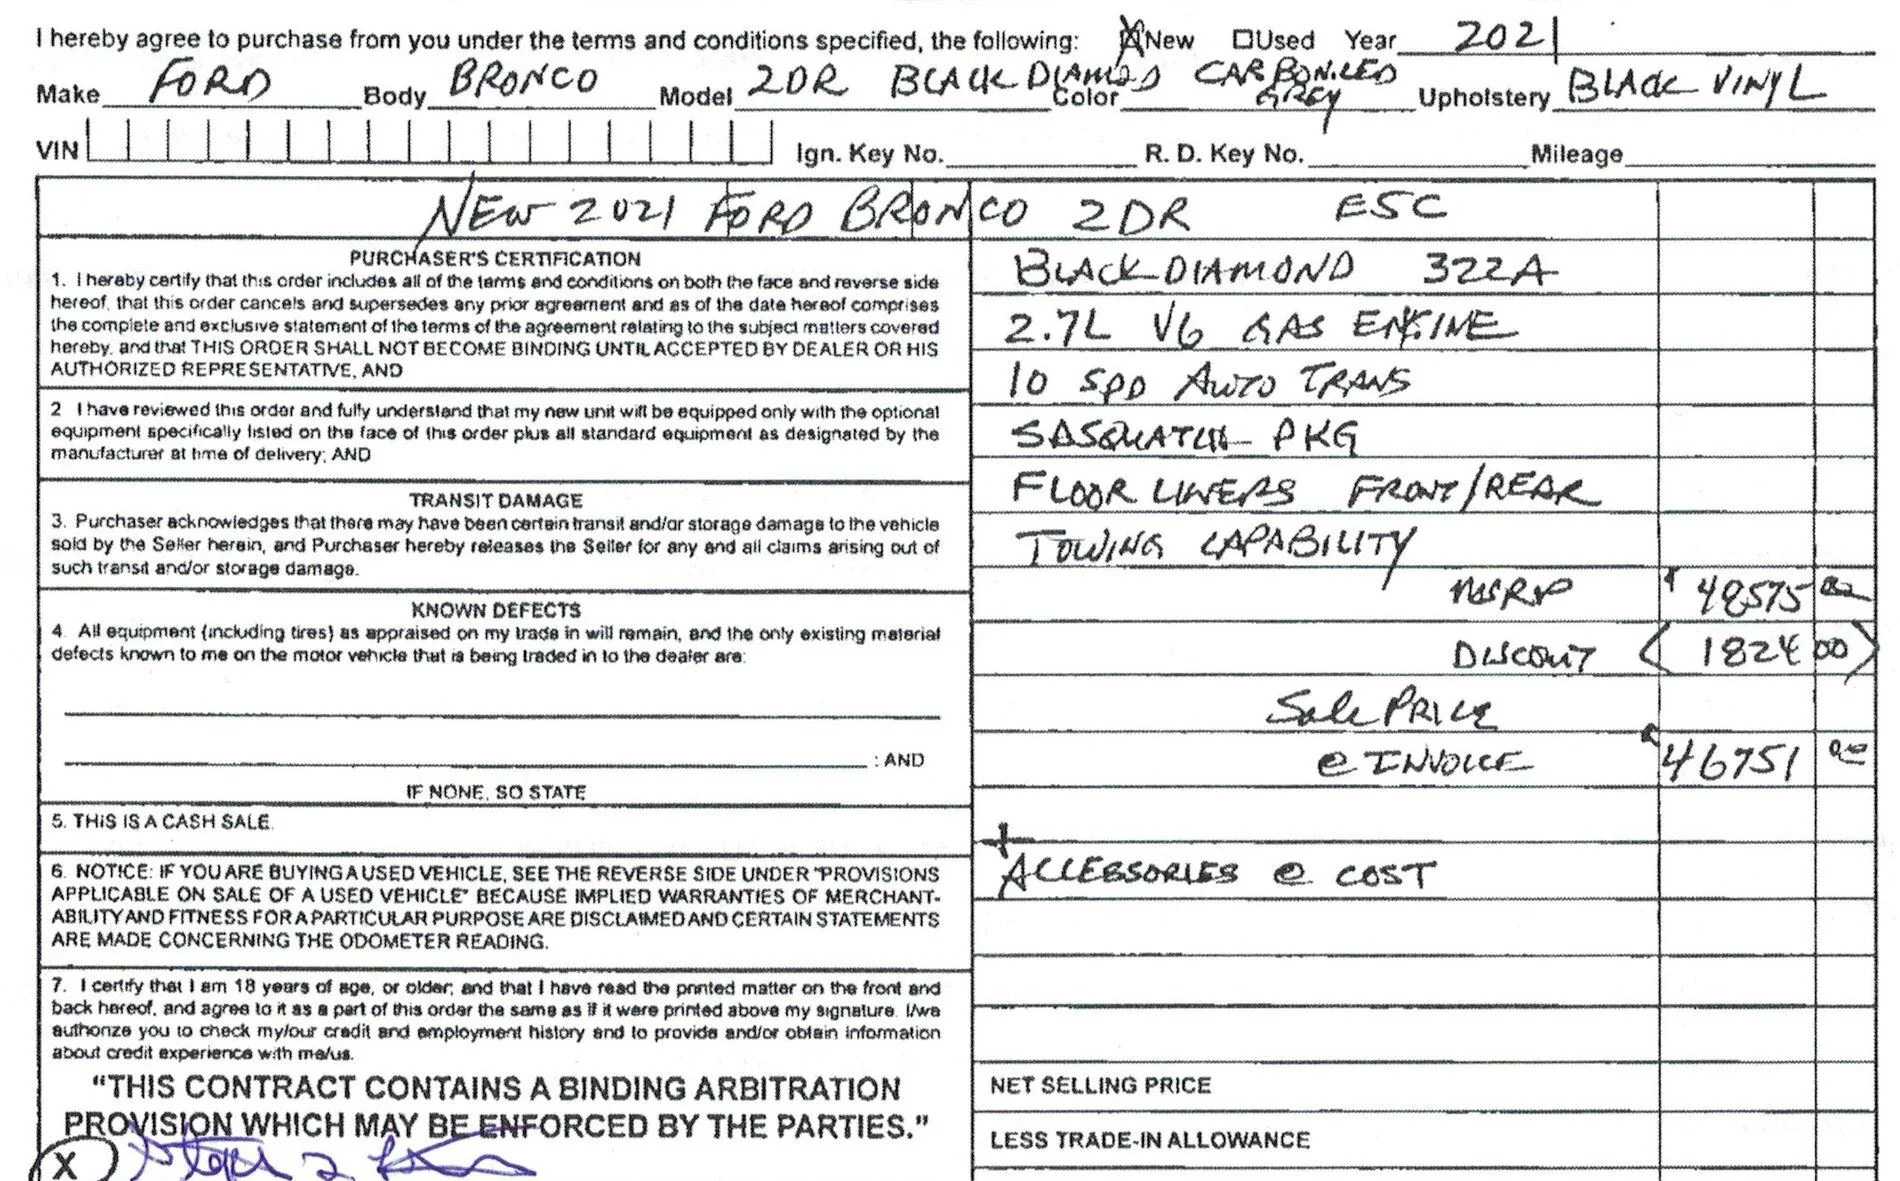 I hereby agree to purchase from you under the terms and conditions specified, the following: New Used Year 2021
Make FORD Body BRONCO Model 2DR BLACK DIAMOND Color CARBONIZED GREY Upholstery BLACK VINYL
VIN Ign. Key No. R. D. Key No. Mileage
NEW 2021 FORD BRONCO 2DR E5C
PURCHASER'S CERTIFICATION
1. I hereby certify that this order includes all of the terms and conditions on both the face and reverse side
hereof, that this order cancels and supersedes any prior agreement and as of the date hereof comprises
the complete and exclusive statement of the terms of the agreement relating to the subject matters covered
hereby, and that THIS ORDER SHALL NOT BECOME BINDING UNTIL ACCEPTED BY DEALER OR HIS
AUTHORIZED REPRESENTATIVE, AND
2 I have reviewed this order and fully understand that my new unit will be equipped only with the optional
equipment specifically listed on the face of this order plus all standard equipment as designated by the
manufacturer at time of delivery; AND
TRANSIT DAMAGE
3. Purchaser acknowledges that there may have been certain transit and/or storage damage to the vehicle
sold by the Seller herein, and Purchaser hereby releases the Seller for any and all claims arising out of
such transit and/or storage damage.
KNOWN DEFECTS
4. All equipment (including tires) as appraised on my trade in will remain, and the only existing material
defects known to me on the motor vehicle that is being traded in to the dealer are:
: AND
IF NONE, SO STATE
5. THIS IS A CASH SALE.
6. NOTICE: IF YOU ARE BUYING A USED VEHICLE, SEE THE REVERSE SIDE UNDER "PROVISIONS
APPLICABLE ON SALE OF A USED VEHICLE" BECAUSE IMPLIED WARRANTIES OF MERCHANT-
ABILITY AND FITNESS FOR A PARTICULAR PURPOSE ARE DISCLAIMED AND CERTAIN STATEMENTS
ARE MADE CONCERNING THE ODOMETER READING.
7. I certify that I am 18 years of age, or older; and that I have read the printed matter on the front and
back hereof, and agree to it as a part of this order the same as if it were printed above my signature. I/we
authorize you to check my/our credit and employment history and to provide and/or obtain information
about credit experience with me/us.
"THIS CONTRACT CONTAINS A BINDING ARBITRATION
PROVISION WHICH MAY BE ENFORCED BY THE PARTIES."
X
BLACK DIAMOND 322A
2.7L V6 GAS ENGINE
10 SPD AUTO TRANS
SASQUATCH PKG
FLOOR LINERS FRONT/REAR
TOWING CAPABILITY
MSRP $ 48575 00
DISCOUNT ( 1824 00 )
Sale PRICE
@ INVOICE $ 46751 00
+
ACCESSORIES @ COST
NET SELLING PRICE
LESS TRADE-IN ALLOWANCE